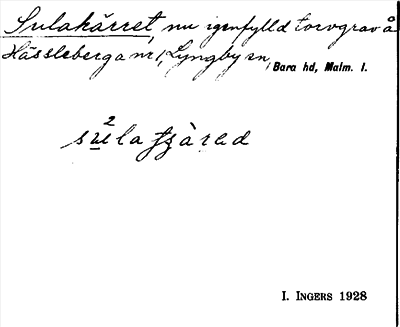 Sulakärret, nu igenfylld torvgrav å
Hässleberga nr 1, Lyngby sn, Bara hd, Malm. l.
2
sulatʒàrad
I. INGERS 1928